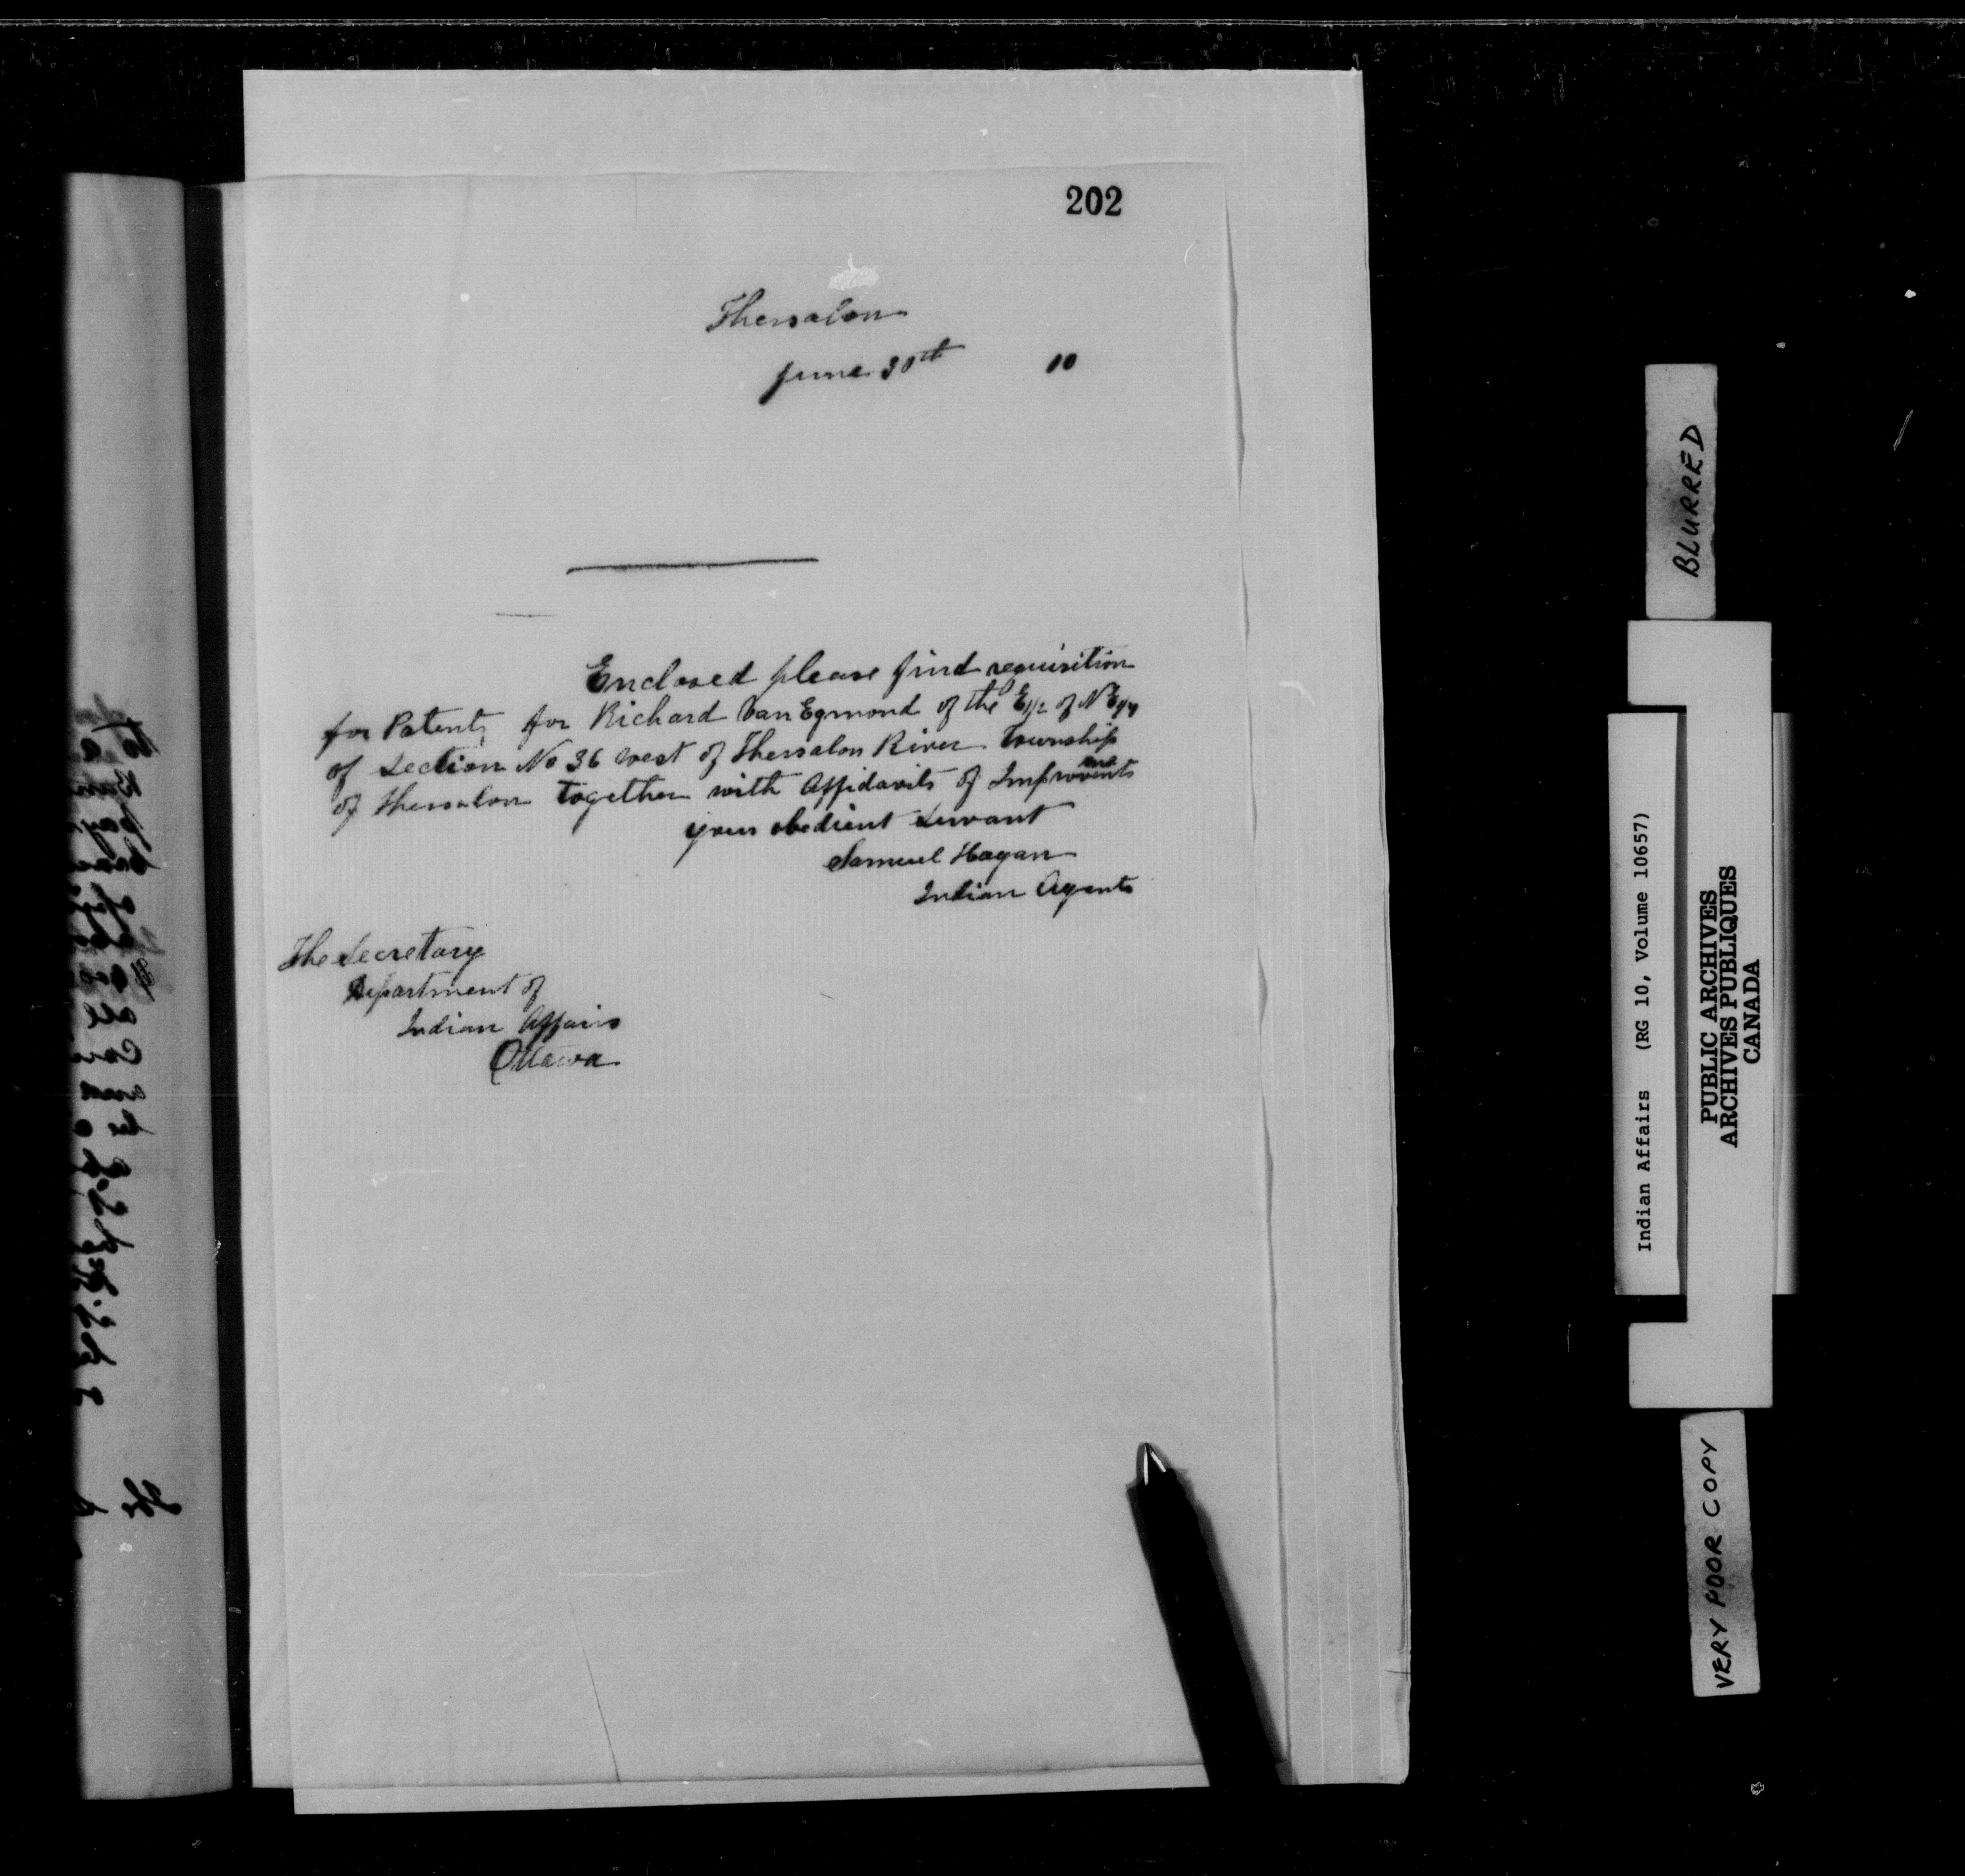 202
Thessalon
June 30th 10
Enclosed please find requisition
for Patent, for Richard Van Egmond of the E1/2 of NE1/4
of Section No 36 west of Thessalon River Township
of Thessalon together with Affidavits of Improvments
your obedient Servant
Samuel Hagan
Indian Agent
The Secretary
Department of
Indian Affairs
Ottawa
BLURRED
Indian Affairs (RG 10, Volume 10657)
PUBLIC ARCHIVES
ARCHIVES PUBLIQUES
CANADA
VERY POOR COPY